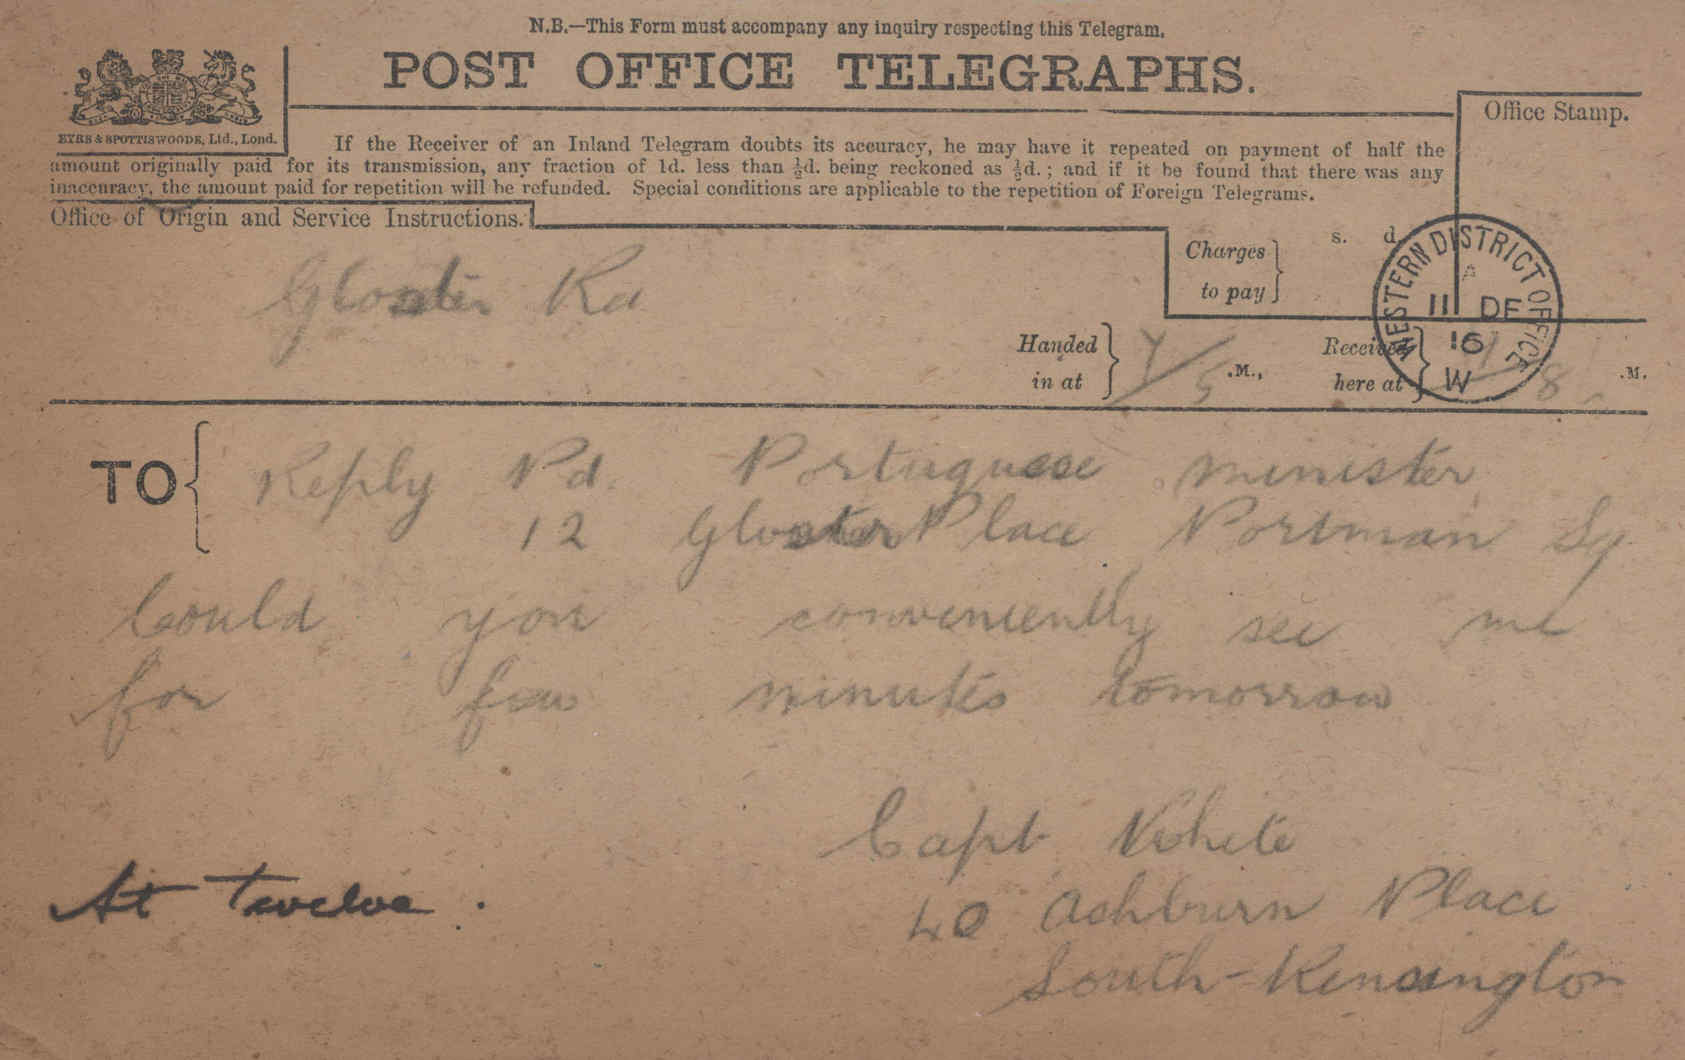 N.B.—This Form must accompany any inquiry respecting this Telegram.
POST OFFICE TELEGRAPHS.
EYRE & SPOTTISWOODE, Ltd., Lond.
Office Stamp.
If the Receiver of an Inland Telegram doubts its accuracy, he may have it repeated on payment of half the
amount originally paid for its transmission, any fraction of 1d. less than ½d. being reckoned as ½d.; and if it be found that there was any
inaccuracy, the amount paid for repetition will be refunded. Special conditions are applicable to the repetition of Foreign Telegrams.
Office of Origin and Service Instructions.
Gloster Rd
Charges
to pay
s. d.
WESTERN DISTRICT OFFICE
A
11 DE
16
W
Handed
in at
.M.,
Received
here at
.M.
TO
Reply Pd. Portuguese minister
12 Gloster Place Portman Sq
Could you conveniently see me
for few minutes tomorrow
Capt White
40 Ashburn Place
South-Kensington
At twelve.